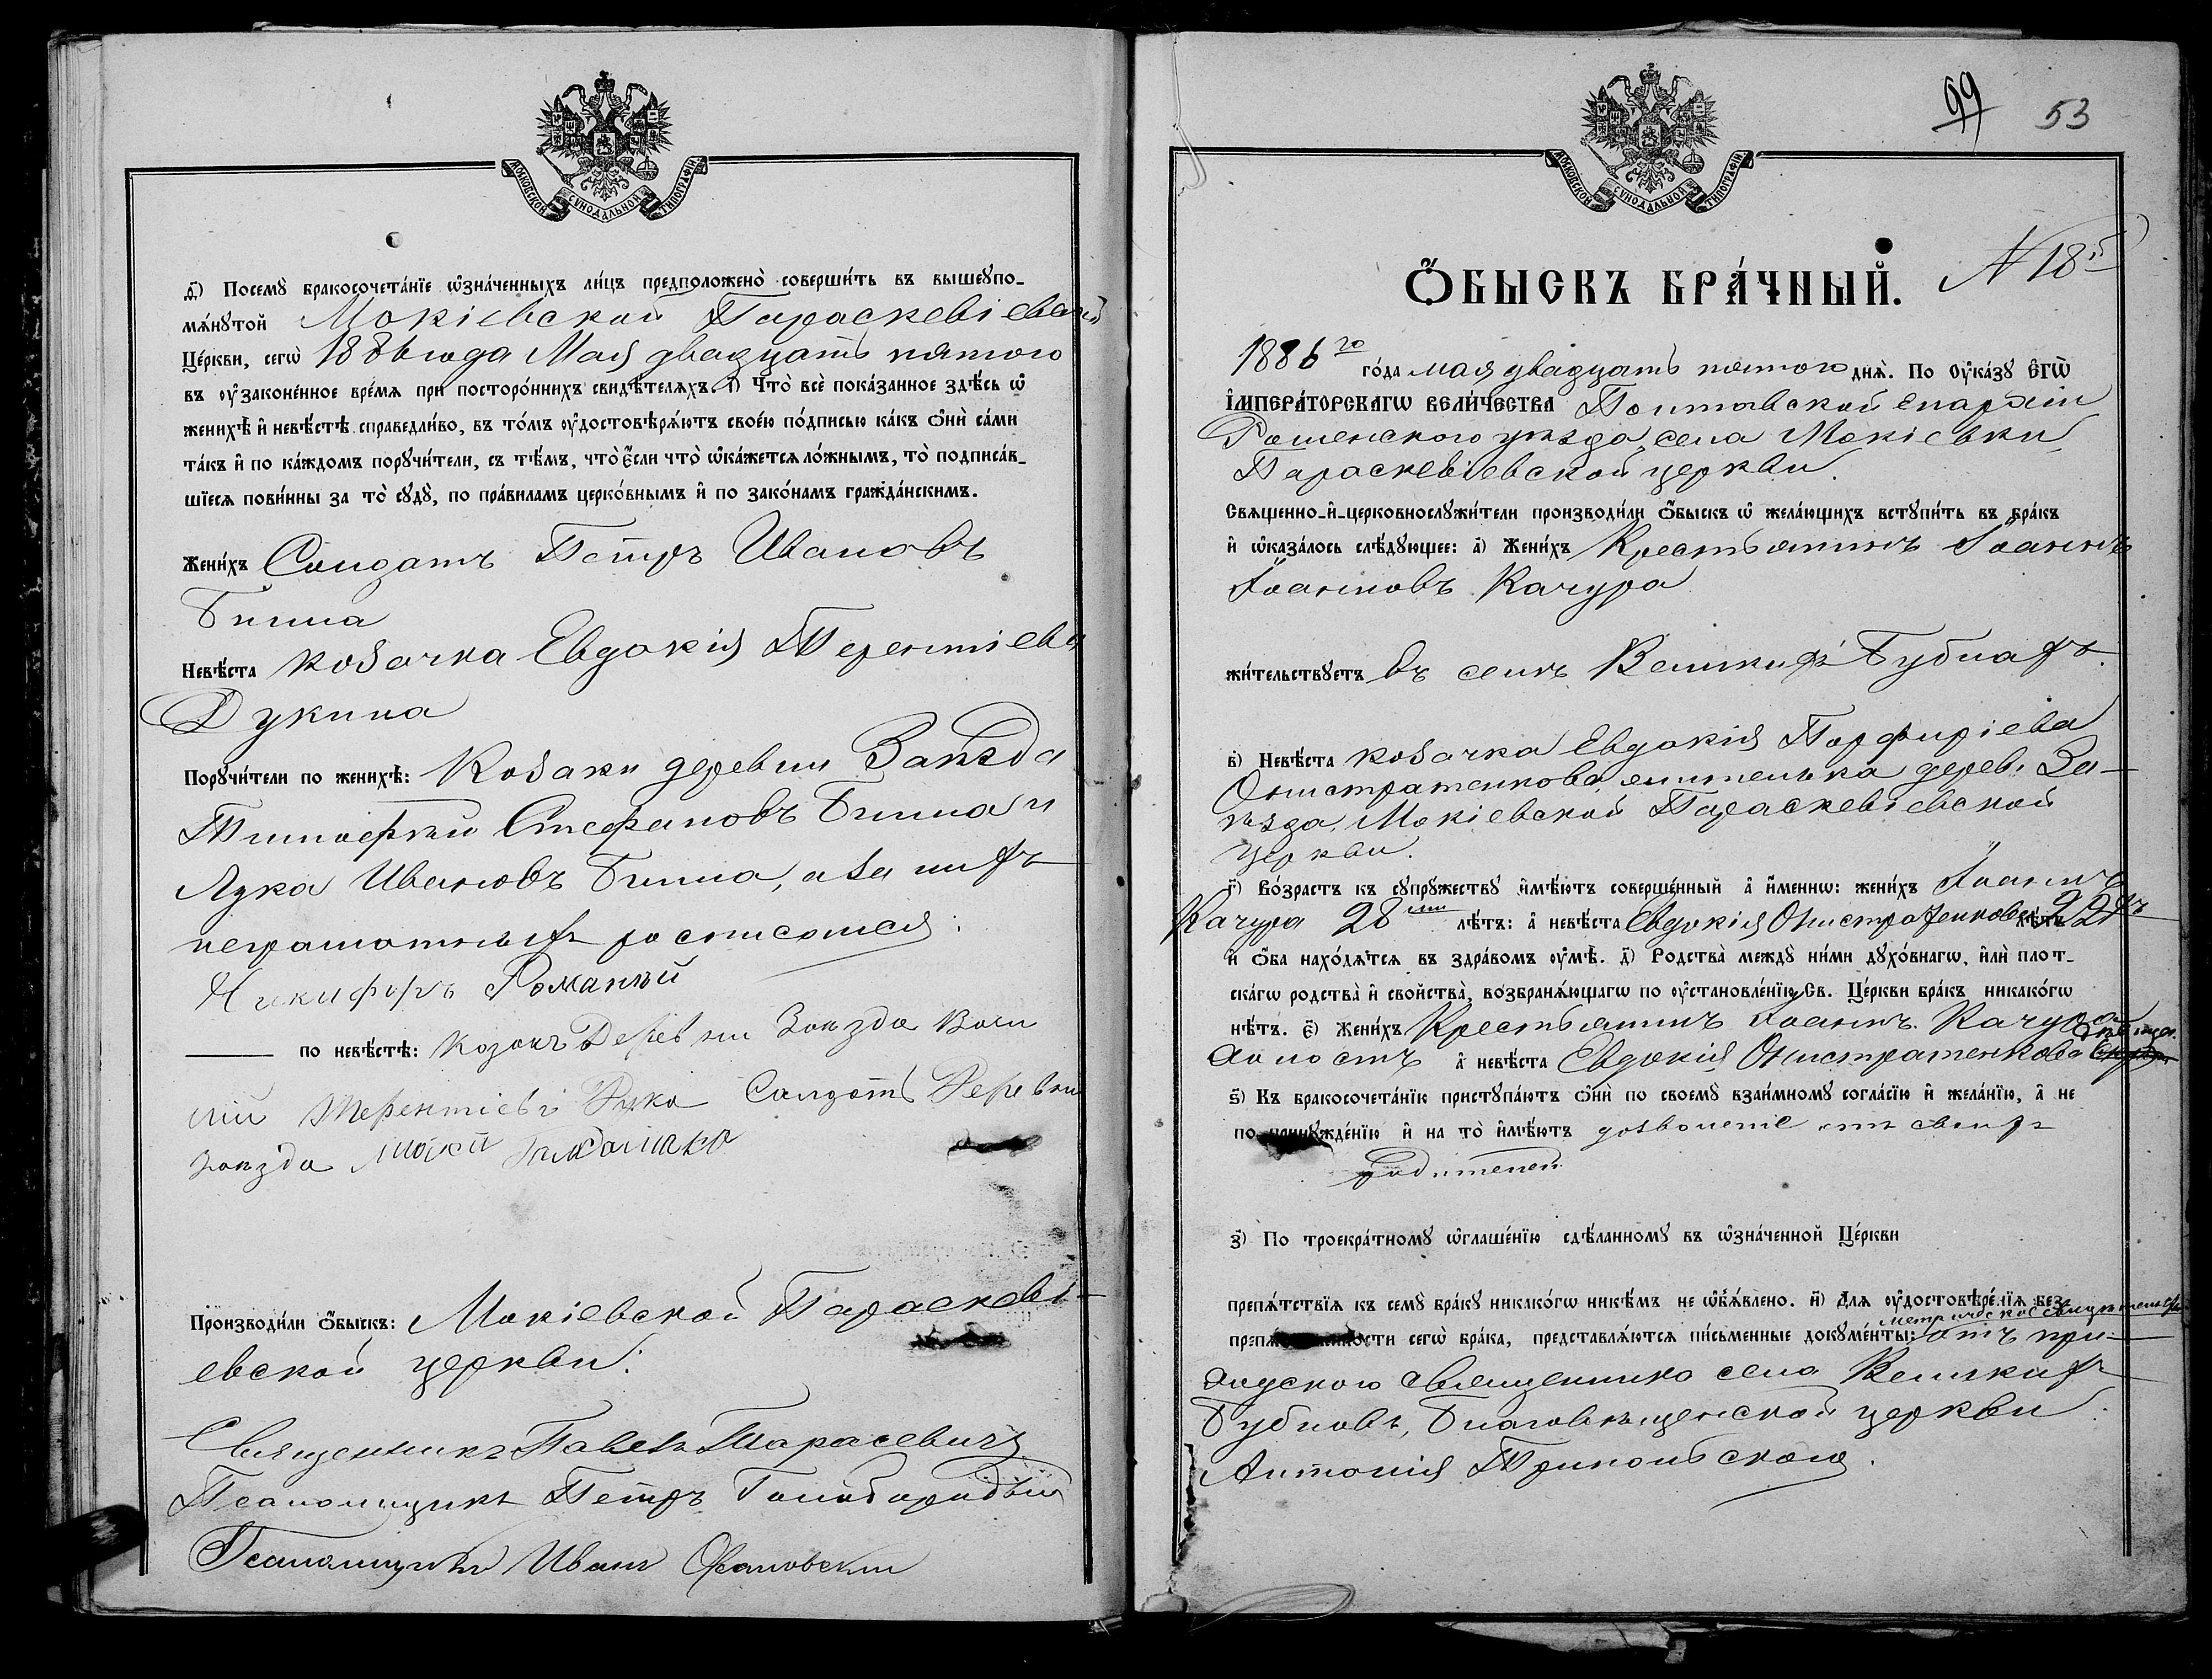 МОСКОВСКОЙ СѴНОДАЛЬНОЙ ТИПОГРАФІИ
ѳ҃і) Посемꙋ бракосочета́нїе ѡ҆зна́ченныхъ ли́цъ предположено̀ соверши́ть въ вышеꙋпо-
мѧ́нꙋтой Мокіевской Параскевіевской
Це́ркви, сегѡ̀ 1886 года Мая двадцать пятого
въ ᲂу҆законе́нное вре́мѧ при посторо́ннихъ свидѣ́телѧхъ. і҃) Что̀ всѐ пока́занное здѣ́сь ѡ҆
женихѣ̀ и҆ невѣ́стѣ справедли́во, въ то́мъ ᲂу҆достовѣрѧ́ютъ свое́ю по́дписью ка́къ ѻ҆нѝ са́ми
та́къ и҆ по ка́ждомъ порꙋчи́тели, съ тѣ́мъ, что̀ є҆́сли что̀ ѡ҆ка́жетсѧ ло́жнымъ, то̀ подписа́в-
шїесѧ пови́нны за то̀ сꙋдꙋ̀, по пра́виламъ церко́внымъ и҆ по зако́намъ гражда́нскимъ.
Жени́хъ Солдатъ Петръ Ивановъ
Невѣ́ста козачка Евдокія Терентіева
Дукина
Порꙋчи́тели по женихѣ̀: Козаки деревни Заѣзда
Тимофѣй Стефановъ и
Лука Ивановъ, а за нихъ
неграмотныхъ росписался:
Никифоръ Романѣй
по невѣ́стѣ: Козакъ Деревни Заезда
Терентіевъ Дука Салдатъ Деревни
Заезда
Производи́ли ѻ҆́быскъ: Мокіевской Параскеві-
евской церкви:
Священникъ Павелъ Тарасевичъ
Псаломщикъ Петръ Голобородько
Псаломщикъ Иванъ
МОСКОВСКОЙ СѴНОДАЛЬНОЙ ТИПОГРАФІИ
99 53
Ѻ҆́БЫСКЪ БРА́ЧНЫЙ. N 18й
1886го го́да мая двадцать пятого днѧ̀. По ᲂу҆ка́зꙋ ЄГѠ̀
І҆МПЕРА́ТОРСКАГѠ ВЕЛИ́ЧЕСТВА Полтавской епархіи
Роменского уѣзда, села Мокіевки
Параскевіевской церкви.
Свѧщенно-и҆-церковнослꙋжи́тели производи́ли ѻ҆́быскъ ѡ҆ жела́ющихъ встꙋпи́ть въ бра́къ
и҆ ѡ҆каза́лось слѣ́дꙋющее: а҃) Жени́хъ Крестьянинъ Іоаннъ
Іоанновъ Качура
жи́тельствꙋетъ въ селѣ Великихъ Бубнахъ.
в҃) Невѣ́ста козачка Евдокія Порфиріева
Онистратенкова, жителька дерев. За-
ѣзда, Мокіевской Параскевіевской
церкви.
г҃) Во́зрастъ къ сꙋпрꙋ́жествꙋ и҆мѣ́ютъ соверше́нный а҆ и҆́меннѡ: жени́хъ Іоаннъ
Качура 28ми лѣ́тъ: а҆ невѣ́ста Евдокія Онистратенкова 22хъ лѣ́тъ
и҆ ѻ҆́ба нахо́дѧтсѧ въ здра́вомъ ᲂу҆мѣ̀. д҃) Родства̀ междꙋ̀ ни́ми дꙋхо́внагѡ, и҆лѝ плот-
ска́гѡ родства̀ и҆ свойства̀, возбранѧ́ющагѡ по ᲂу҆становле́нїю Св. Це́ркви бра́къ никако́гѡ
нѣ́тъ. є҃) Жени́хъ Крестьянинъ Іоаннъ Качура
холостъ а҆ невѣ́ста Евдокія Онистратенкова дѣвица.
ѕ҃) Къ бракосочета́нїю пристꙋпа́ютъ ѻ҆нѝ по своемꙋ̀ взаи́мномꙋ согла́сїю и҆ жела́нїю, а҆ не
по принꙋжде́нїю и҆ на то̀ и҆мѣ́ютъ дозволеніе отъ своихъ
родителей
з҃) По троекра́тномꙋ ѡ҆глаше́нїю сдѣ́ланномꙋ въ ѡ҆зна́ченной Це́ркви
препѧ́тствїѧ къ семꙋ̀ бра́кꙋ никако́гѡ никѣ́мъ не ѡ҆б̾ѧ́влено. и҃) Длѧ ᲂу҆достовѣре́нїѧ без-
препѧ́тственности сегѡ̀ бра́ка, представлѧ́ютсѧ пи́сьменные докꙋме́нты: отъ при-
ходского священника села Великихъ
Бубновъ, Благовѣщенской церкви
Антонія Трипольского.